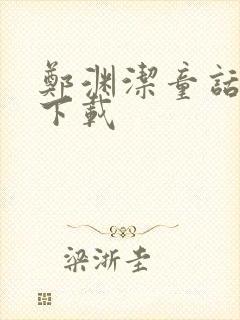 鄭渊潔童話
下載
梁浙圭